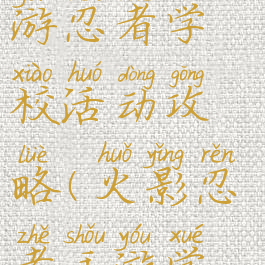 游忍者学
xiào huó dòng gōng
校活动攻
lüè huǒ yǐng rěn
略(火影忍
zhě shǒu yóu xué
者手游学